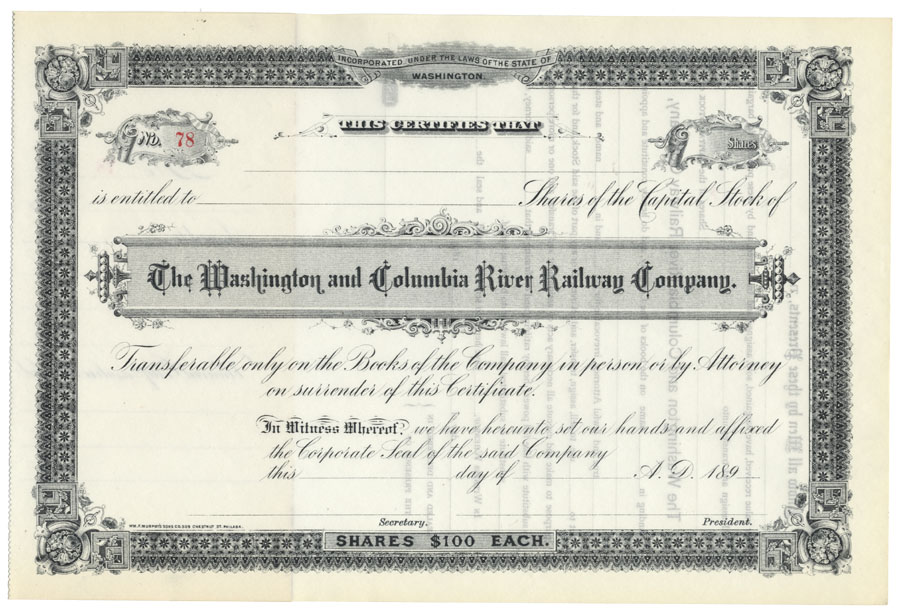 INCORPORATED UNDER THE LAWS OF THE STATE OF
WASHINGTON
THIS CERTIFIES THAT
No. 78
Shares
is entitled to Shares of the Capital Stock of
The Washington and Columbia River Railway Company.
Transferable only on the Books of the Company in person or by Attorney
on surrender of this Certificate.
In Witness Whereof, we have hereunto set our hands and affixed
the Corporate Seal of the said Company
this day of A. D. 189
WM. F. MURPHY'S SONS CO. 509 CHESTNUT ST. PHILADA.
Secretary. President.
SHARES $100 EACH.